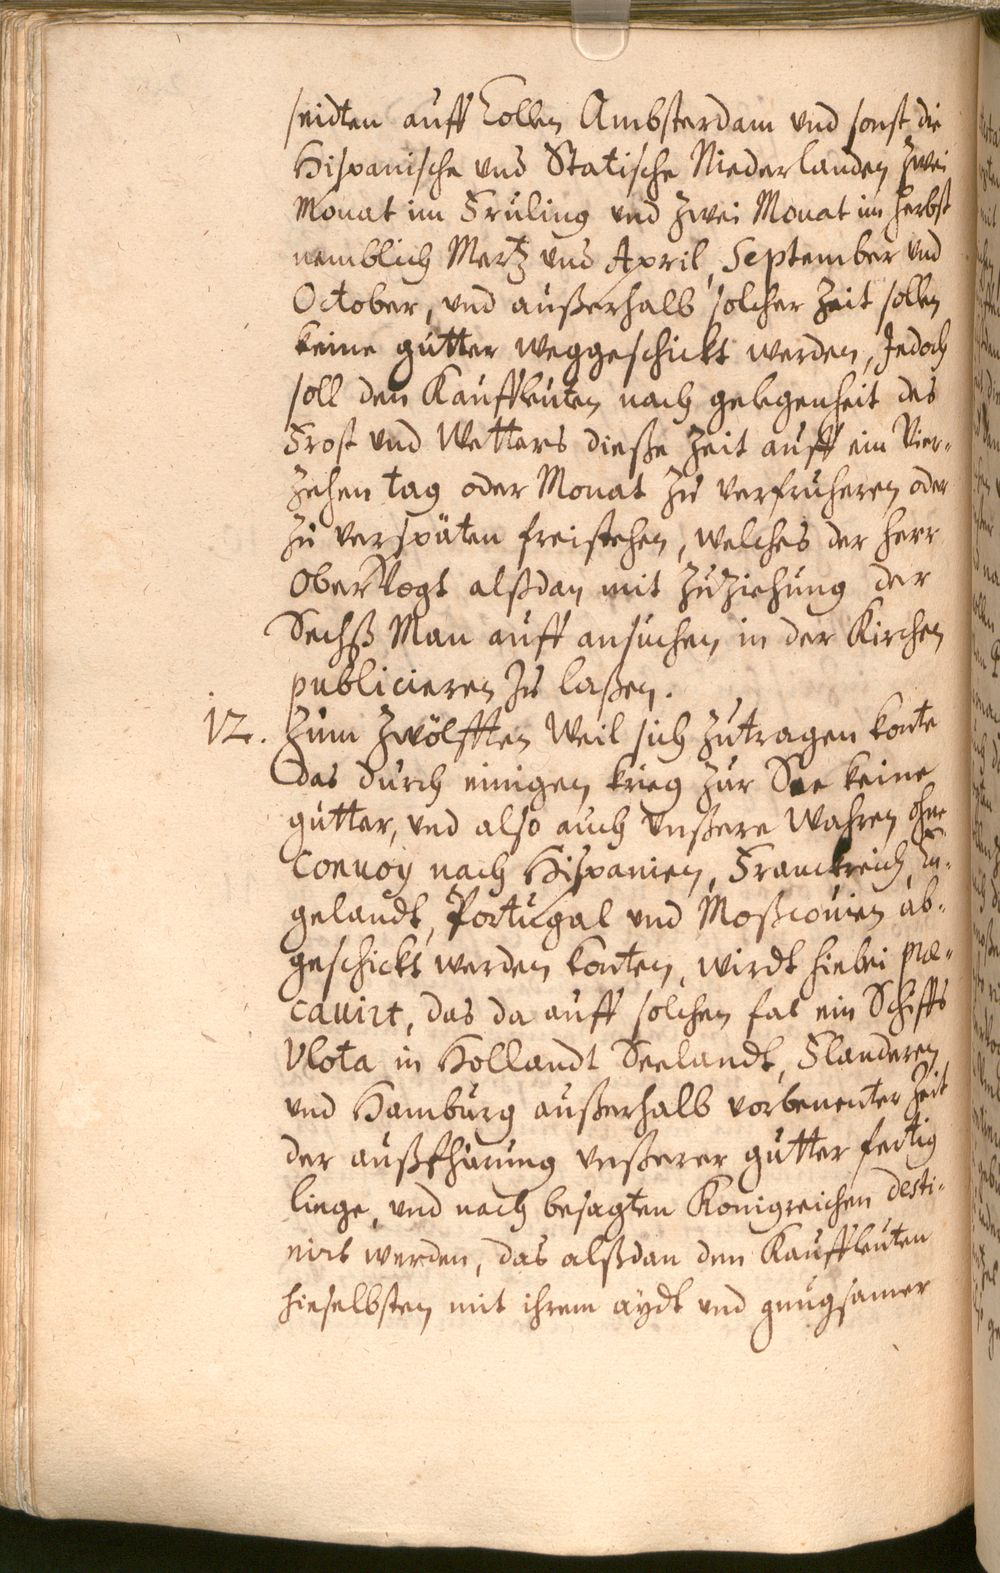 seidten auff Collen Ambsterdam und sonst die
Hispanische und Statische Niederlanden zwei
Monat im Fruling und zwei Monat im herbst
nemblich Mertz und April, September und
October, und außerhalb solcher Zeit sollen
keine gutter weggeschickt werden, Jedoch
soll den Kauffleuten nach gelegenheit des
Frost und Wetters dieße Zeit auff ein Vier-
zehen tag oder Monat zu verfruheren oder
zu verspäten freistehen, welches der Herr
Ober Vogt alßdan mit Zuziehung der
Sechß Man auff ansuchen in der Kirchen
publicieren zu laßen.
12. Zum Zwölfften Weil sich zutragen konte
das durch einigen krieg zur See keine
gutter, und also auch unßere Wahren ohne
Convoy nach Hispanien, Franckreich, En-
gelandt, Portugal und Moßcovien ab-
geschickt werden konten, wirdt hiebei præ-
cavirt, das da auff solchen fal ein Schiffs
Vlota in Hollandt Seelandt, Flanderen
und Hamburg außerhalb vorbenenter Zeit
der außfhürung unßerer gutter fertig
liege, und nach besagten Konigreichen desti-
nirt werden, das alßdan den Kauffleuten
hieselbsten mit ihrem aydt und gnugsamer